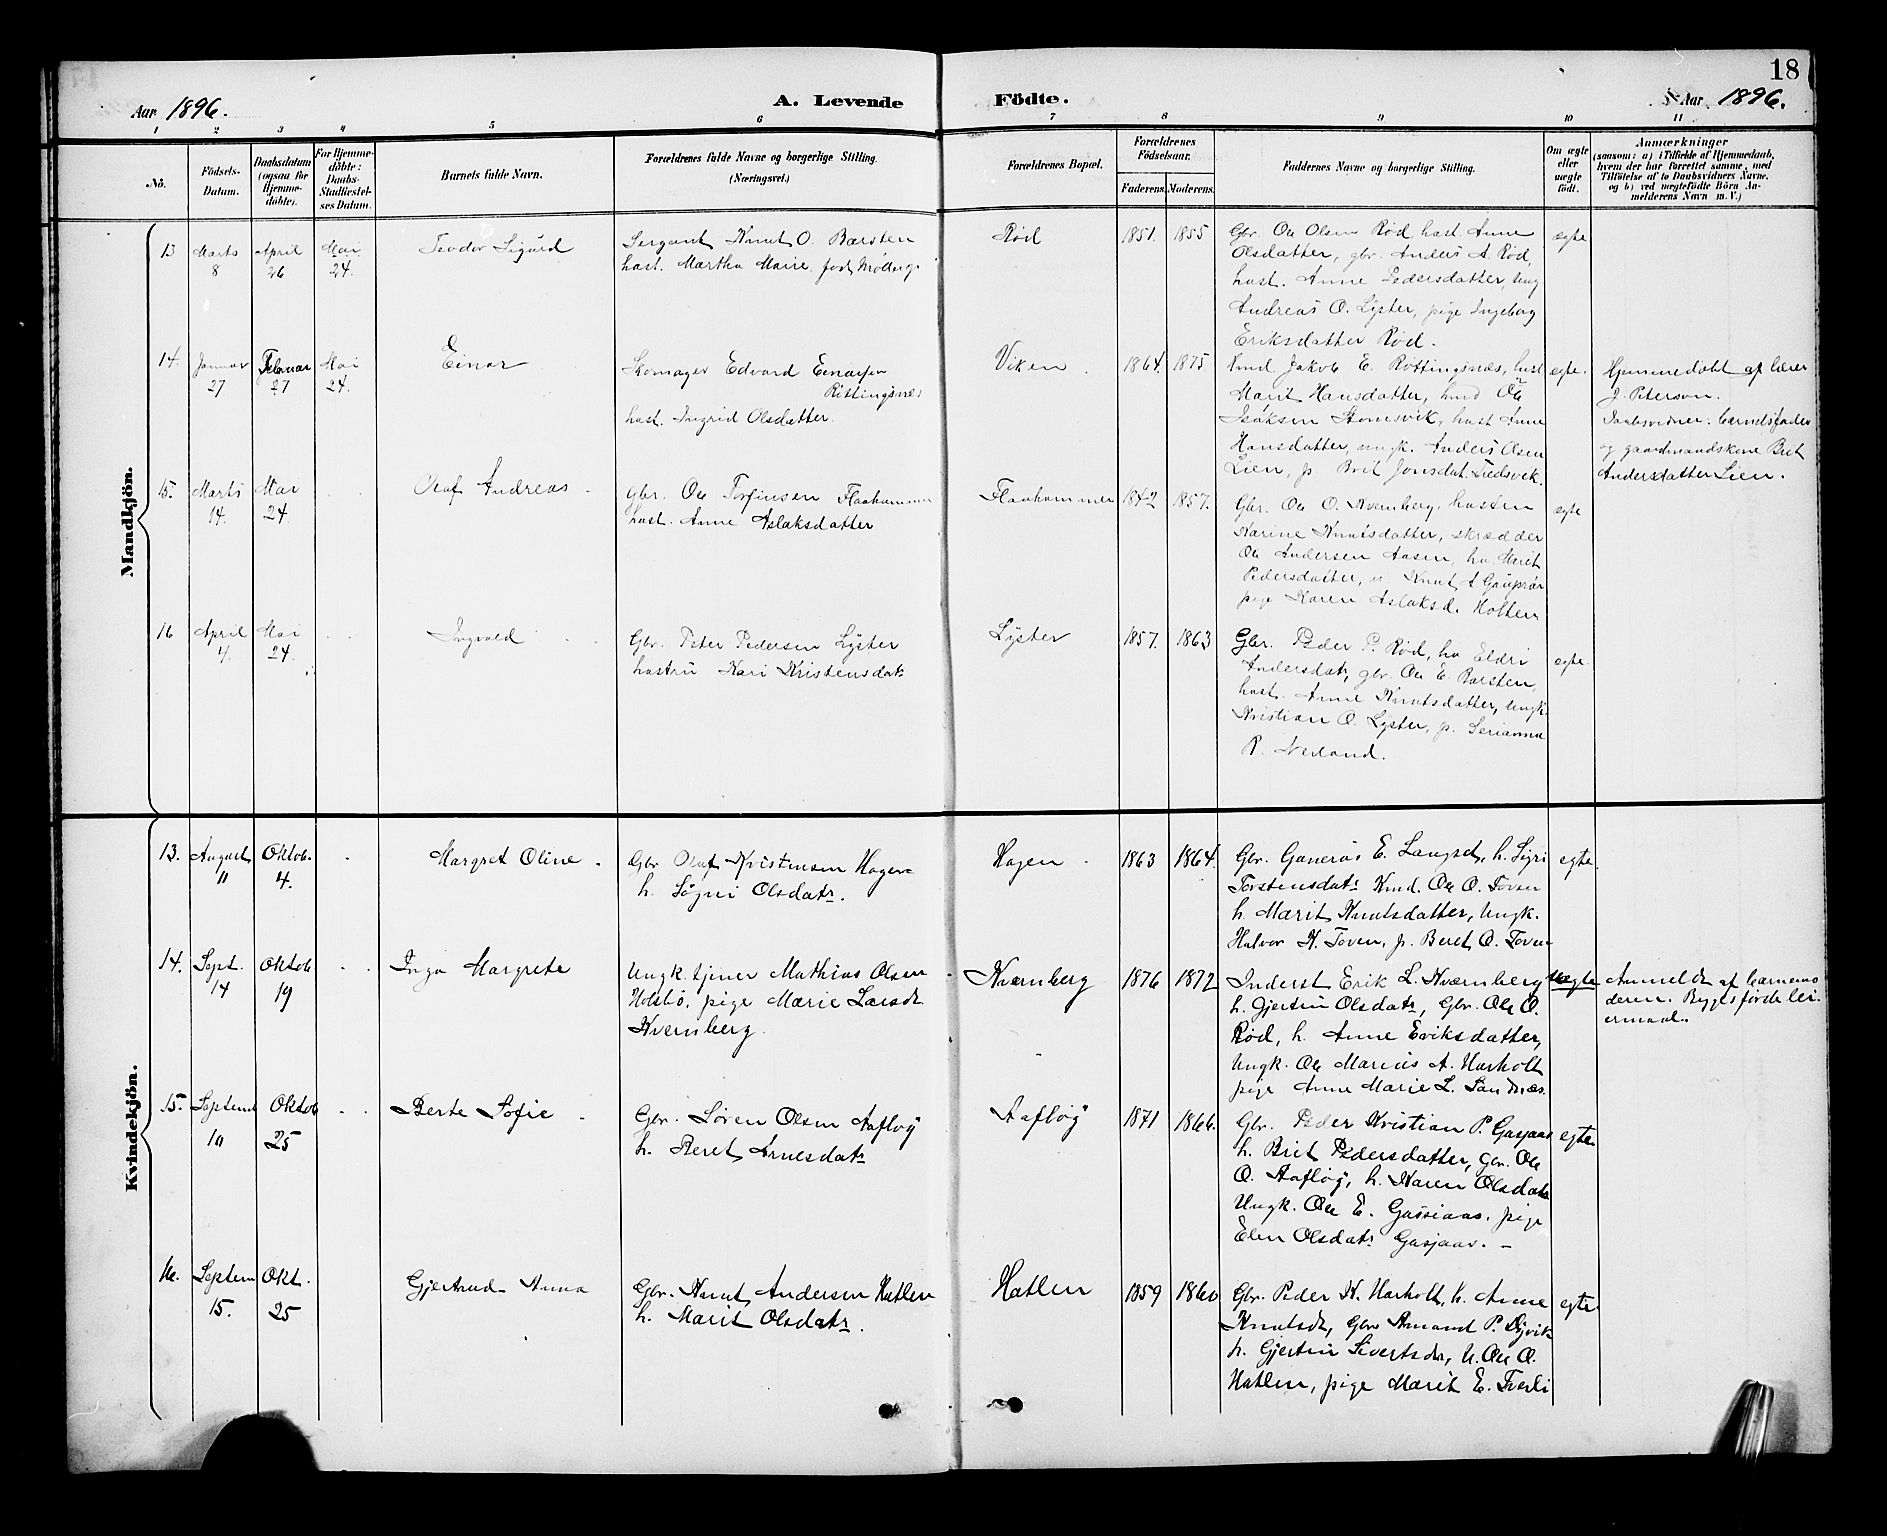 18
Aar 1896.
A. Levende
Födte.
Aar 1896.
1 2 3 4 5 6 7 8 9 10 11
No.
Födsels-
Datum.
Daabsdatum
(ogsaa for
Hjemme-
döbte).
For Hjemme-
döbte:
Daabs-
Stadfæstel-
ses Datum.
Barnets fulde Navn.
Forældrenes fulde Navne og borgerlige Stilling.
(Næringsvei.)
Forældrenes Bopæl.
Forældrenes
Födselsaar.
Faderens. Moderens.
Faddernes Navne og borgerlige Stilling.
Om ægte
eller
uægte
födt.
Anmærkninger
(saasom: a) i Tilfælde af Hjemmedaab,
hvem der har forrettet samme, med
Tilföielse af to Daabsvidners Navne,
og b) ved uægtefödte Börn An-
melderens Navn m. V.)
Mandkjön.
13 Marts 8 April 26 Mai 24. Teodor Sigurd
Sergant Knut O. Barsten
hast. Martha Marie født
Rød 1851. 1855
Gbr. Ole Olsen Rød hast. Anne
Olsdatter, gbr. Anders A. Rød,
hust. Anne Pedersdatter, ung
Andreas O. Lyster, pige Ingeborg
Eriksdatter Rød.
ægte
14. Januar 27 Februar 27 Mai 24. Einar
Skomager Edvard Einarsen
Røttingsnæs
hast. Ingrid Olsdatter.
Viken 1864. 1875.
Kmd. Jakob E. Røttingsnæs, hust
Marit Hansdatter, kmd Ole
Isaksen Stomsvik, hast Anne
Hansdatter, ungk. Anders Olsen
Lien, p. Brit Jonsdat.
egte.
Hjemmedøbt af lærer
J. Peterson.
Daabsvidner: barnets fader
og gaardmandskone Brit
Andersdatter Lien.
15. Marts 14. Mai 24. Olaf Andreas
Gbr. Ole Torfinsen Flaahammer
hast. Anne Aslaksdatter
Flaahammer 1842 1857.
Gbr. Ole O. Kvernberg, hustru
Karine Knutsdatter, skrædder
Ole Andersen Aasen, hu. Marit
Pedersdatter, u. Knut A Gauprør
pige Karen Aslaksd. Holten
ægte
16 April 4. Mai 24. Ingvald
Gbr. Peter Pedersen Lyster
hustru Kari Kristensdatr
Lyster 1857. 1863
Gbr. Peder P. Rød, hu Eldri
Andersdatr, gbr. Ole E. Barsten,
hust. Anne Knutsdatter, ungk.
Kristian O. Lyster, p. Serianna
P. Nerland.
egte.
Kvindekjön.
13. August 11 Oktob. 4. Margret Oline
Gbr Olaf Kristensen Hagen
h. Søgni Olsdatr.
Hagen 1863 1864.
Gbr. Gunerius E. Langset, h. Sigri
Torstensdatr Kmd. Ole O. Toven
h. Marit Knutsdatter, Ungk.
Halvor K. Toven, p. Beret O. Toven
egte.
14. Sept. 14 Oktob 19 Inga Margrete
Ungk. tjener Mathias Olsen
Holsbø, pige Marie Larsdt
Kvernberg.
Kvernberg 1876 1872
Inderst Erik L. Kværnberg
h. Gjertin Olsdatr, Gbr. Ole O.
Rød, h. Anne Eriksdatter,
Ungk. Ole Marius A. Harholt
pige Anne Marie L. Sandnæs.
uægte
Anmeldt af barnemo-
deren. Begges første lei-
ermaal.
15. Septemb 10 Oktob 25 Berte Sofie
Gbr. Søren Olsen Aafløy
h. Beret Arnesdatr
Aafløy 1871 1866.
Gbr. Peder Kristian P. Gasjaas
h. Brit Pedersdatter, Gbr. Ole
O. Aafløy, h. Karen Olsdatr
Ungk. Ole E. Gassiaas. pige
Elen Olsdatr Gasjaas. –
egte.
16. Septem 15. Okt. 25 Gjertrud Anna
Gbr. Knut Andersen Hatlen
h. Marit Olsdatr.
Hatlen 1859 1860
Gbr. Peder K. Harholt, h. Anne
Knutsdt, Gbr Amand P. Digvik
h. Gjertin Sivertsdr, U. Ole O.
Hatlen, pige Marit E. Tverli
egte.